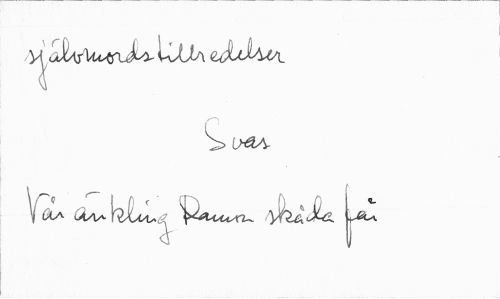 självmordstillredelser
Svas
Vår änkling Ramon skåda får